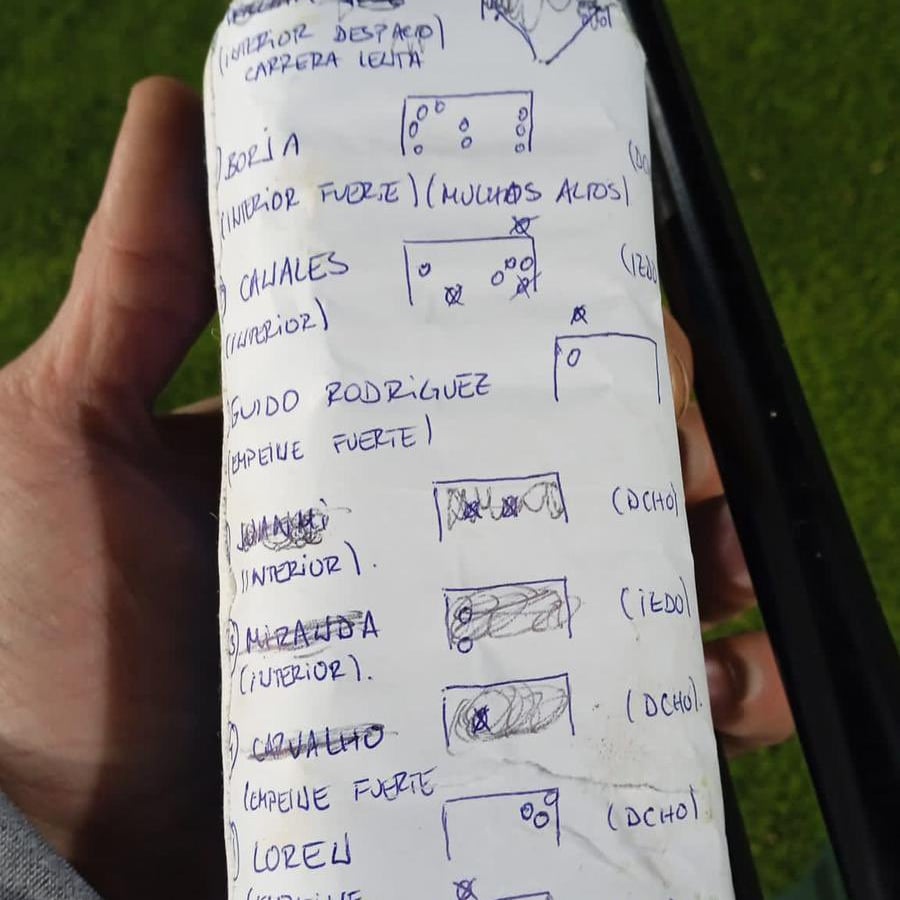 (INTERIOR DESPACIO)
CARRERA LENTA
BORJA
(INTERIOR FUERTE) (MUCHOS ALTOS)
CANALES (IZDO
(INTERIOR)
GUIDO RODRIGUEZ
(EMPEINE FUERTE)
JUANMI (DCHO)
(INTERIOR).
MIRANDA (IZDO)
(INTERIOR).
CARVALHO (DCHO).
(EMPEINE FUERTE
LOREN (DCHO)